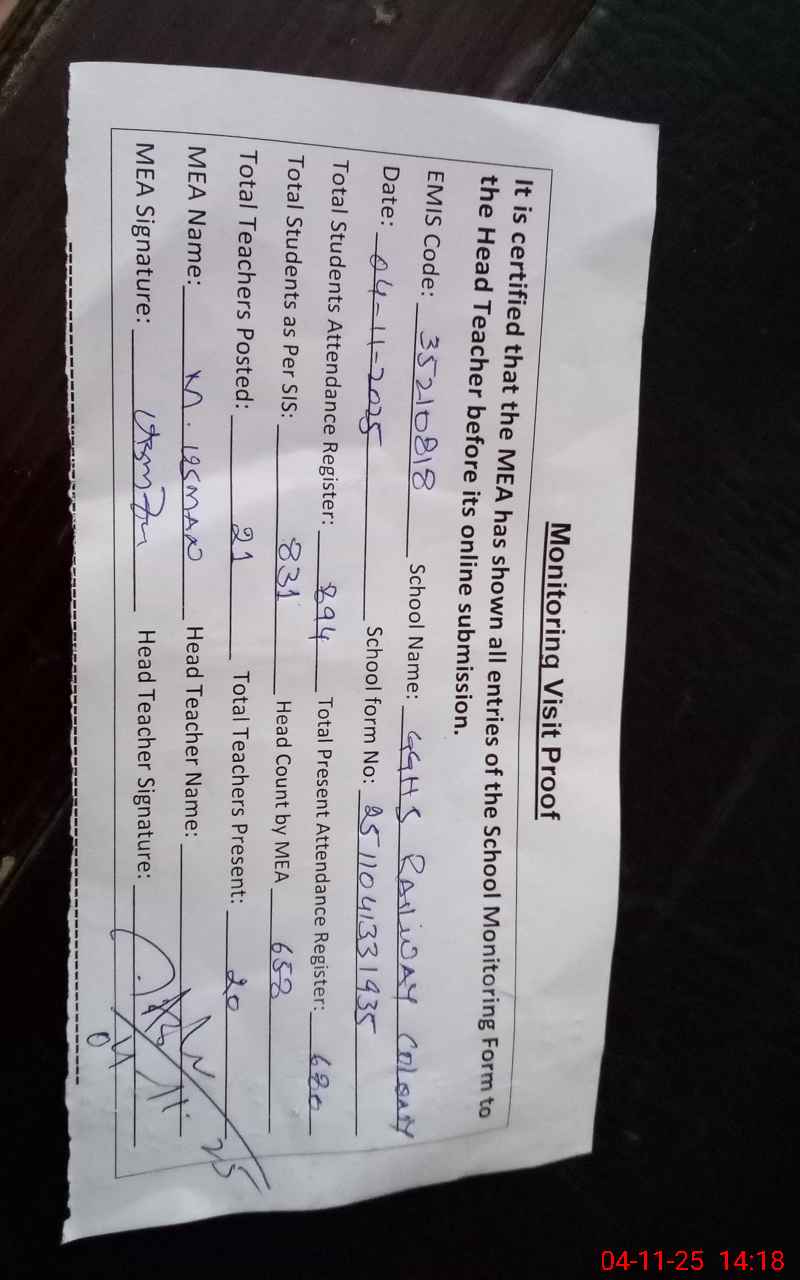 Monitoring Visit Proof
It is certified that the MEA has shown all entries of the School Monitoring Form to
the Head Teacher before its online submission.
EMIS Code: 35210818 School Name: GGHS RAILWAY COLONY
Date: 04-11-2025 School form No: 2511041331935
Total Students Attendance Register: 894 Total Present Attendance Register: 680
Total Students as Per SIS: 831 Head Count by MEA 658
Total Teachers Posted: 21 Total Teachers Present: 20
MEA Name: M. USMAN Head Teacher Name:
MEA Signature: Head Teacher Signature:
04-11-25 14:18